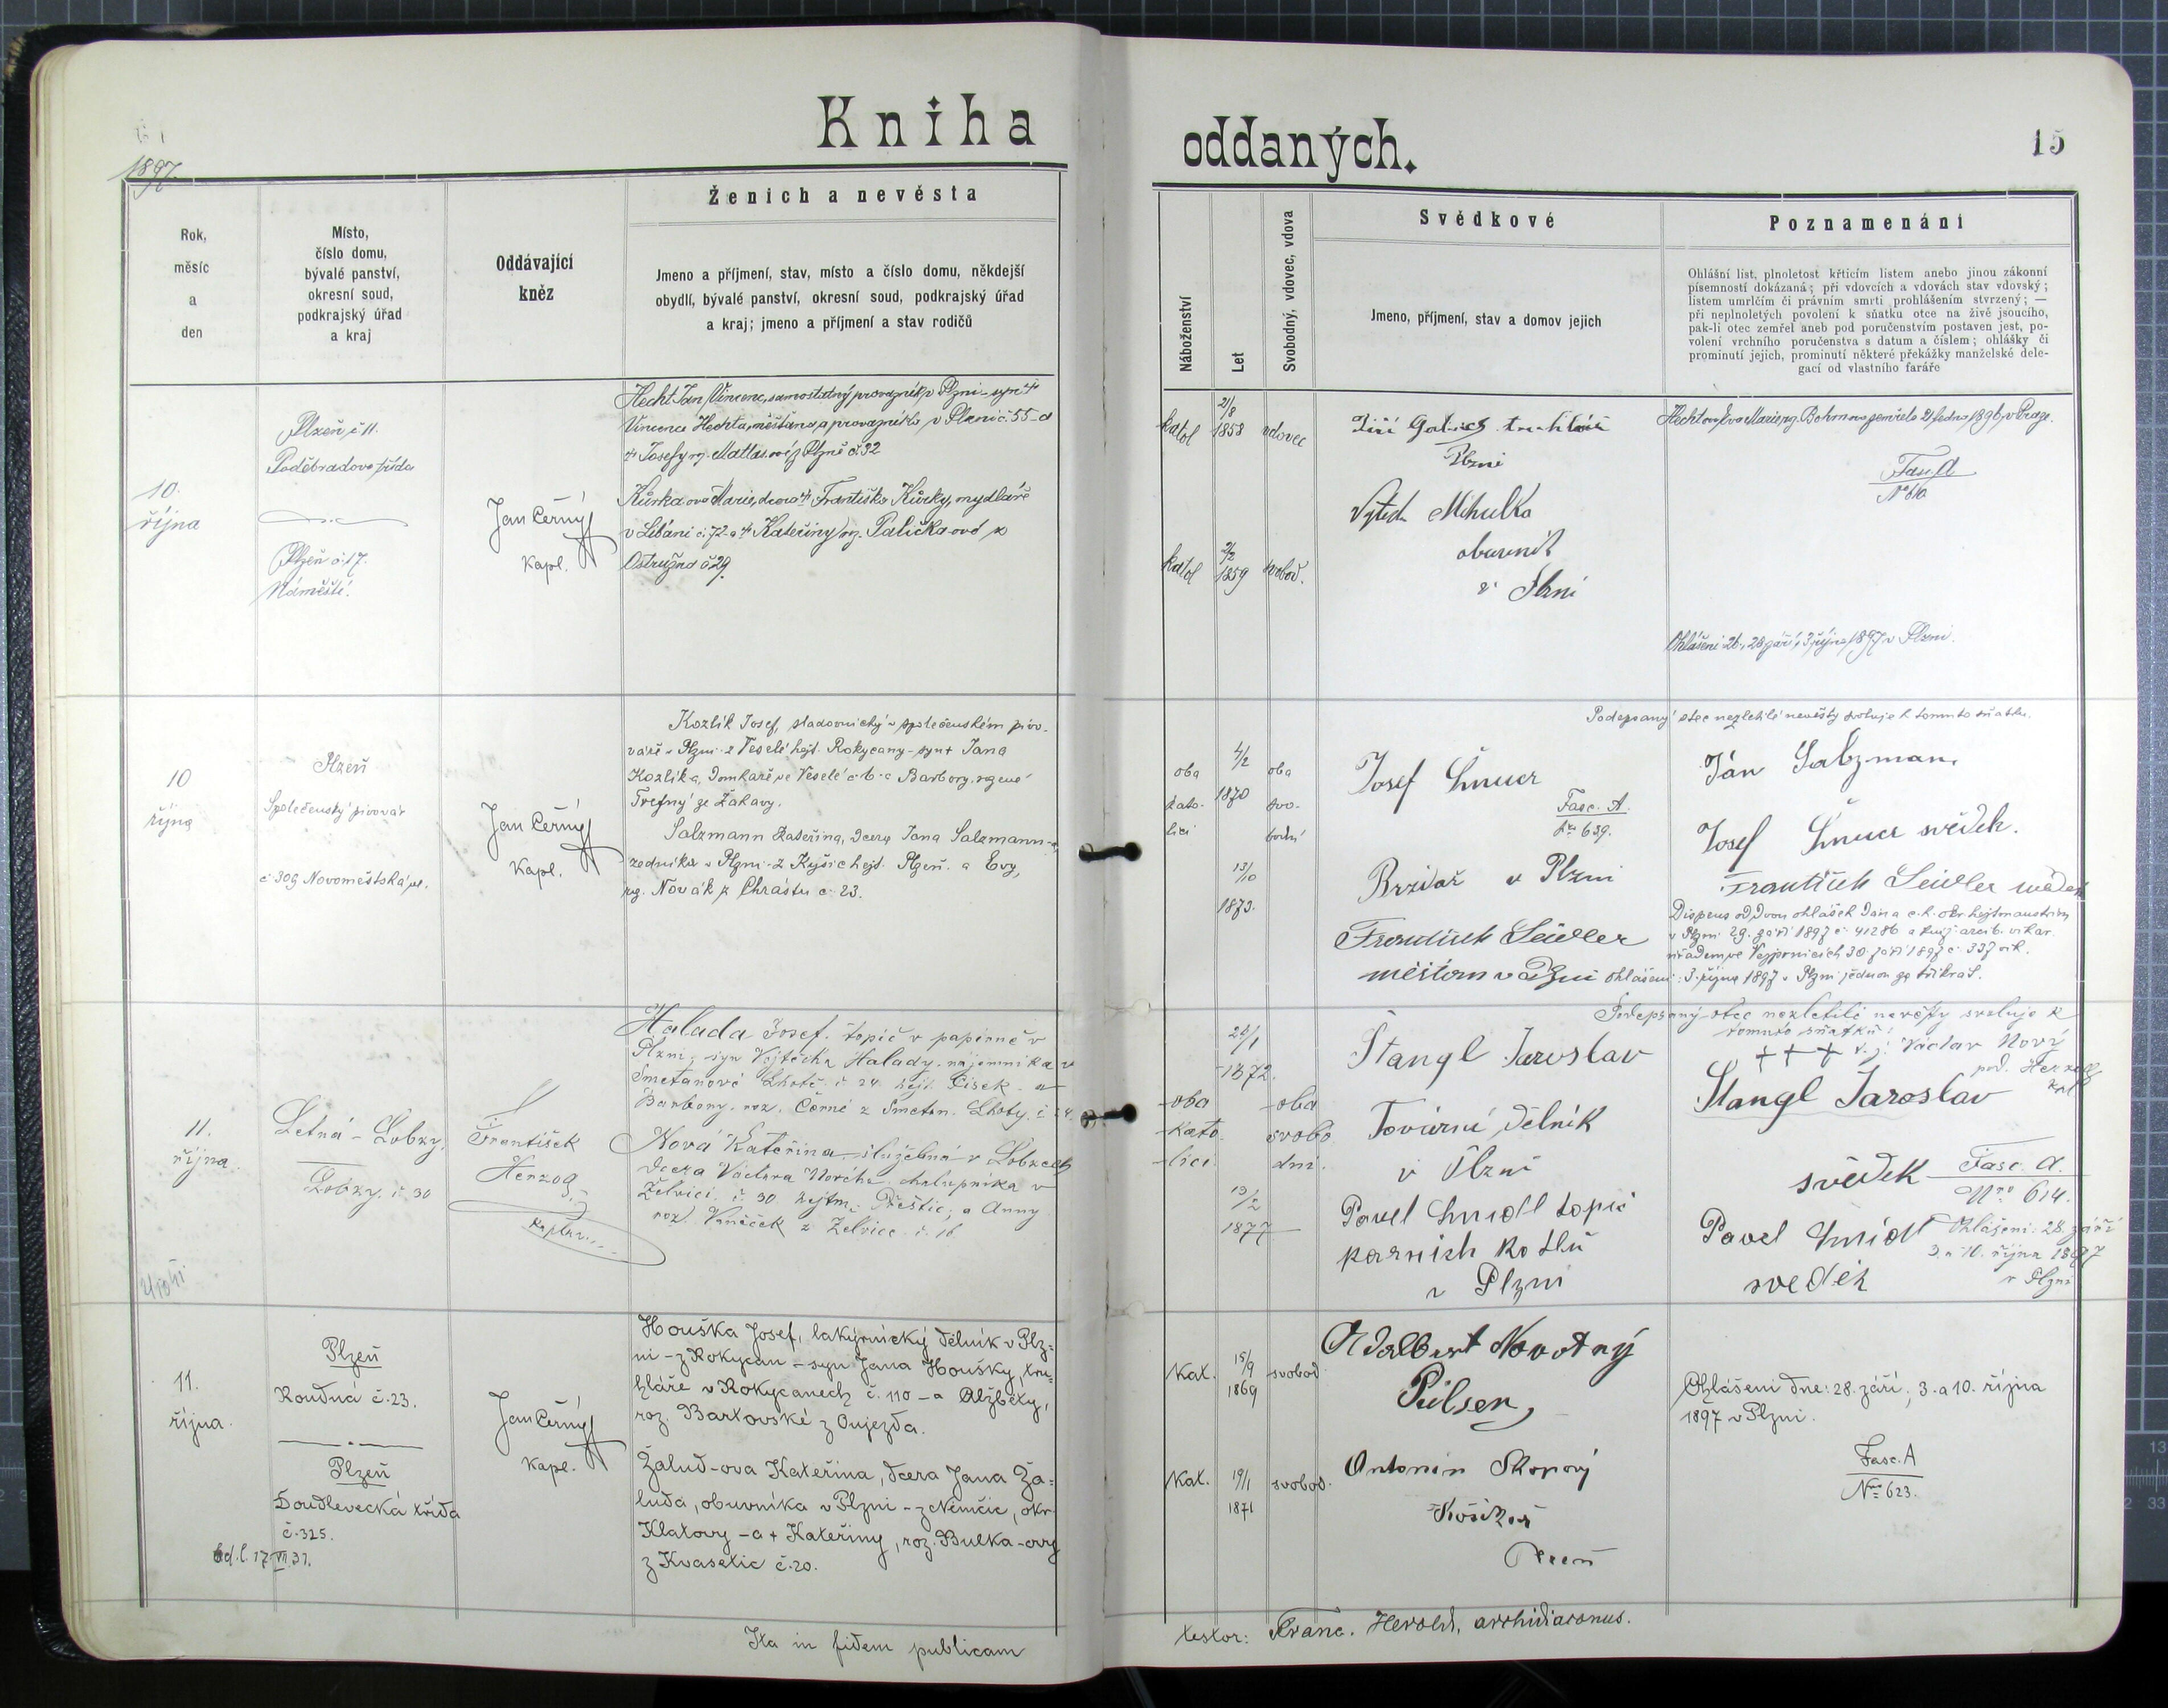 Kniha oddaných.
15
1897
Ženich a nevěsta
Rok,
měsíc
a
den
Místo,
číslo domu,
bývalé panství,
okresní soud,
podkrajský úřad
a kraj
Oddávající
kněz
Jmeno a příjmení, stav, místo a číslo domu, někdejší
obydlí, bývalé panství, okresní soud, podkrajský úřad
a kraj; jmeno a příjmení a stav rodičů
Náboženství
Let
Svobodný, vdovec, vdova
Svědkové
Jmeno, příjmení, stav a domov jejich
Poznamenání
Ohlášní list, plnoletost křticím listem anebo jinou zákonní
písemností dokázaná; při vdovcích a vdovách stav vdovský;
listem umrlčím či právním smrti prohlášením stvrzený; —
při neplnoletých povolení k sňatku otce na živě jsoucího,
pak-li otec zemřel aneb pod poručenstvím postaven jest, po-
volení vrchního poručenstva s datum a číslem; ohlášky či
prominutí jejich, prominutí některé překážky manželské dele-
gací od vlastního faráře
10.
října
Plzeň č 11.
Poděbradova třída
Plzeň č. 17.
Náměstí.
Jan Černý
Kapl.
Hecht Jan Vincenc, samostatný provazník v Plzni - syn +
Vincence Hechta, měšťana a provazníka v Plzni č. 55 - a
+ Josefy roz. z Plzně č. 32
Kůrka-ova Marie, dcera + Františka Kůrky, mydláře
v Libáni č. 72 - a + Kateřiny roz. Palička-ové z
Ostružna č. 29.
katol
2/8
1858
vdovec
katol
2/2
1859
svobod.
Jiří truhlář
Plzni
Vojtěch Mihulka
obuvník
v Plzni
zemřela 21. ledna 1896 v Praze.
Fasc. A
Ohlášeni: 26., 28 září, 3 října 1897 v Plzni.
10
října
Plzeň
Společenský pivovar
č 309 Novoměstská
Jan Černý
Kapl.
Kozlík Josef, sladovnický v společenském pivo-
váře v Plzni - z Veselé hejt. Rokycany - syn + Jana
Kozlíka, domkaře ve Veselé č 6 - a Barbory, rozené
Trefný ze Žákavy.
Salzmann Kateřina, dcera Jana Salzmann-a
zedníka v Plzni - z Kyšic hejt. Plzeň. a Evy,
roz. Novák z Chrástu č 23.
oba
kato-
líci
4/2
1870
13/10
1873.
oba
svo-
bodní
Josef Šnucr
Fasc. A.
639.
Brzdař v Plzni
František Seidler
měšťan v Plzni
Podepsaný otec nezletilé nevěsty svoluje k tomuto sňatku.
Ján Salzman.
Josef Šnucr svědek.
František Seidler svědek
Dispens od dvou ohlášek dána c.k. okr. hejtmanstvím
v Plzni 29. září 1897 č 41286 a kníž. arcib. vikar.
úřadem ve Vejprnicích 30. září 1897 č 337 vik.
Ohlášeni: 3. října 1897 v Plzni jednou za třikrát.
11.
října
Letná - Lobzy
Lobzy. č. 30
František
Herzog
kaplan
Halada Josef. topič v papírně v
Plzni; syn Vojtěcha Halady. nájemníka v
Smetanově Lhotě. č. 24. hejt. Písek. a
Barbory. roz. Černé z Smetan. Lhoty. č 24.
Nová Kateřina služebná v Lobzech
dcera Václava chalupníka v
Želvici. č. 30 hejtm. Přeštic; a Anny
roz. Vaněček z Želvice. č. 16
oba
kato-
líci
24/1
1872.
19/2
1877
oba
svobo
dni.
Štangl Jaroslav
Tovární dělník
v Plzni
Pavel Šmídl topič
parních kotlů
v Plzni
Podepsaný otec nezletilé nevěsty svoluje k
tomuto sňatku:
+ + + Václav Nový
pod. Herzog
kpl
Štangl Jaroslav
svědek
Fasc. A.
Nro 614.
Pavel Šmídl
svedek
Ohlášeni: 28. září
3. a 10. října 1897
v Plzni
11.
října.
Plzeň
Roudná č. 23.
Plzeň
Doudlevecká třída
č. 325.
Jan Černý
Kapl.
Houška Josef, lakýrnický dělník v Plz-
ni - z Rokycan - syn Jana Houšky, tru-
hláře v Rokycanech č. 110 - a Alžběty,
roz. Bartovské z Oujezda.
Žalud-ova Kateřina, dcera Jana Ža-
luda, obuvníka v Plzni - z Němčic, okr.
Klatovy - a + Kateřiny, roz. Bulka-ovy
z Kvasetic č. 20.
Kat.
15/9
1869
svobod.
Kat.
19/1
1871
svobod.
Adalbert Novotný
Pilsen
Antonín Skopový
Ohlášeni dne: 28. září, 3. a 10. října
1897 v Plzni.
Fasc. A
Nro 623.
Ita in fidem publicam
testor: Franc. Herold, archidiaconus.